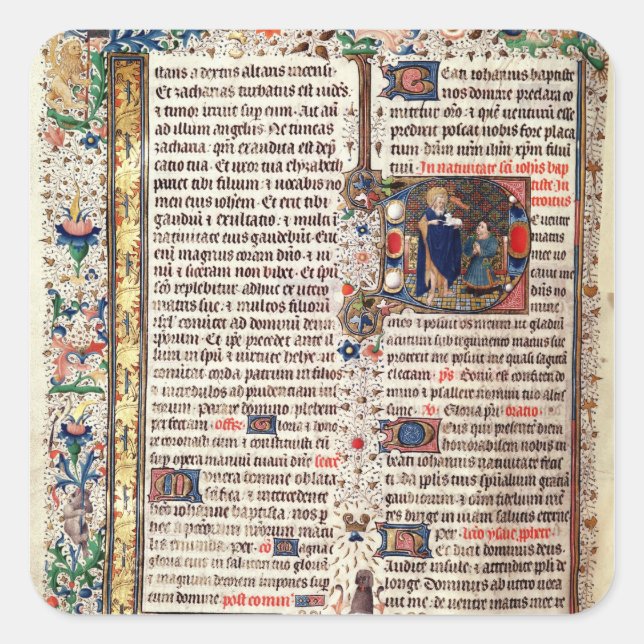 stans a dextris altaris incensi
Et zacharias turbatus est vidēs
& timor irruit sup eum. Ait aūt
ad illum angelus Ne timeas
zacharia. qm exaudita est dep̄
catio tua. Et uxor tua elyzabeth
pariet tibi filium & vocabis no
men eius iohēm. Et erit tibi
gaudiū & exultacio & multi ī
nativitate eius gaudebūt. Erit
enim magnus coram dn̄o. & vi
nū & siceram non bibet. Et spū
replebitur adhuc ex utero
matris sue. & multos filiorū
isrl̄ convertet ad dominū deum
ipsorum. Et ip̄e precedet ante il
lum in spū & virtute helye. ut
convertat corda patrum in filios
& incredulos ad prudentiam ius
torum. Parare domino plebem
perfectam. offer̄. Gloria & hono
re coronasti eum & constituisti eū
sup opera manuū tuarū dn̄e. secre
Munera domine oblata
sc̄ifica & intercedente
beato iohanne baptista. nos per
hec a peccatorum nostrorum macu
lis emunda. Per. cō Magna ē
gloria eius in salutari tuo gloriā
& magnum decorem impones sup
eum domine. post comun̄.
Beati iohannis baptiste
nos domine preclara co
mitetur orō. & quē venturū esse
predixit poscat nobis fore placa
tum. dn̄m nrm ihm xpm filium
tuū. In nativitate sc̄i iohīs bap
tiste. In
troitus
De ventre
matris
mee vo
cavit me
dn̄s no
mine
meo & posuit os meum ut gladiū
acutum sub tegumento manus sue
protexit me posuit me quasi sagittā
electam. p̄s. Bonū est confiteri do
mino & psallere nomini tuo altis
sime. v. Gloria p̄ri. oratio.
Deus qui presentē diem
honorabilem nobis in
beati iohannis nativitate fecis
ti. da pplīs tuis spūalium gratiā
gaudiorum. & om̄ fidelium men
tes dirige in viam salutis eterne
Per. lectio ysaie prophete.
Hec dicit dominus deus.
Audite insule & attendite ppli de
longe. Dominus ab utero voca
vit me. de ventre matris mee re